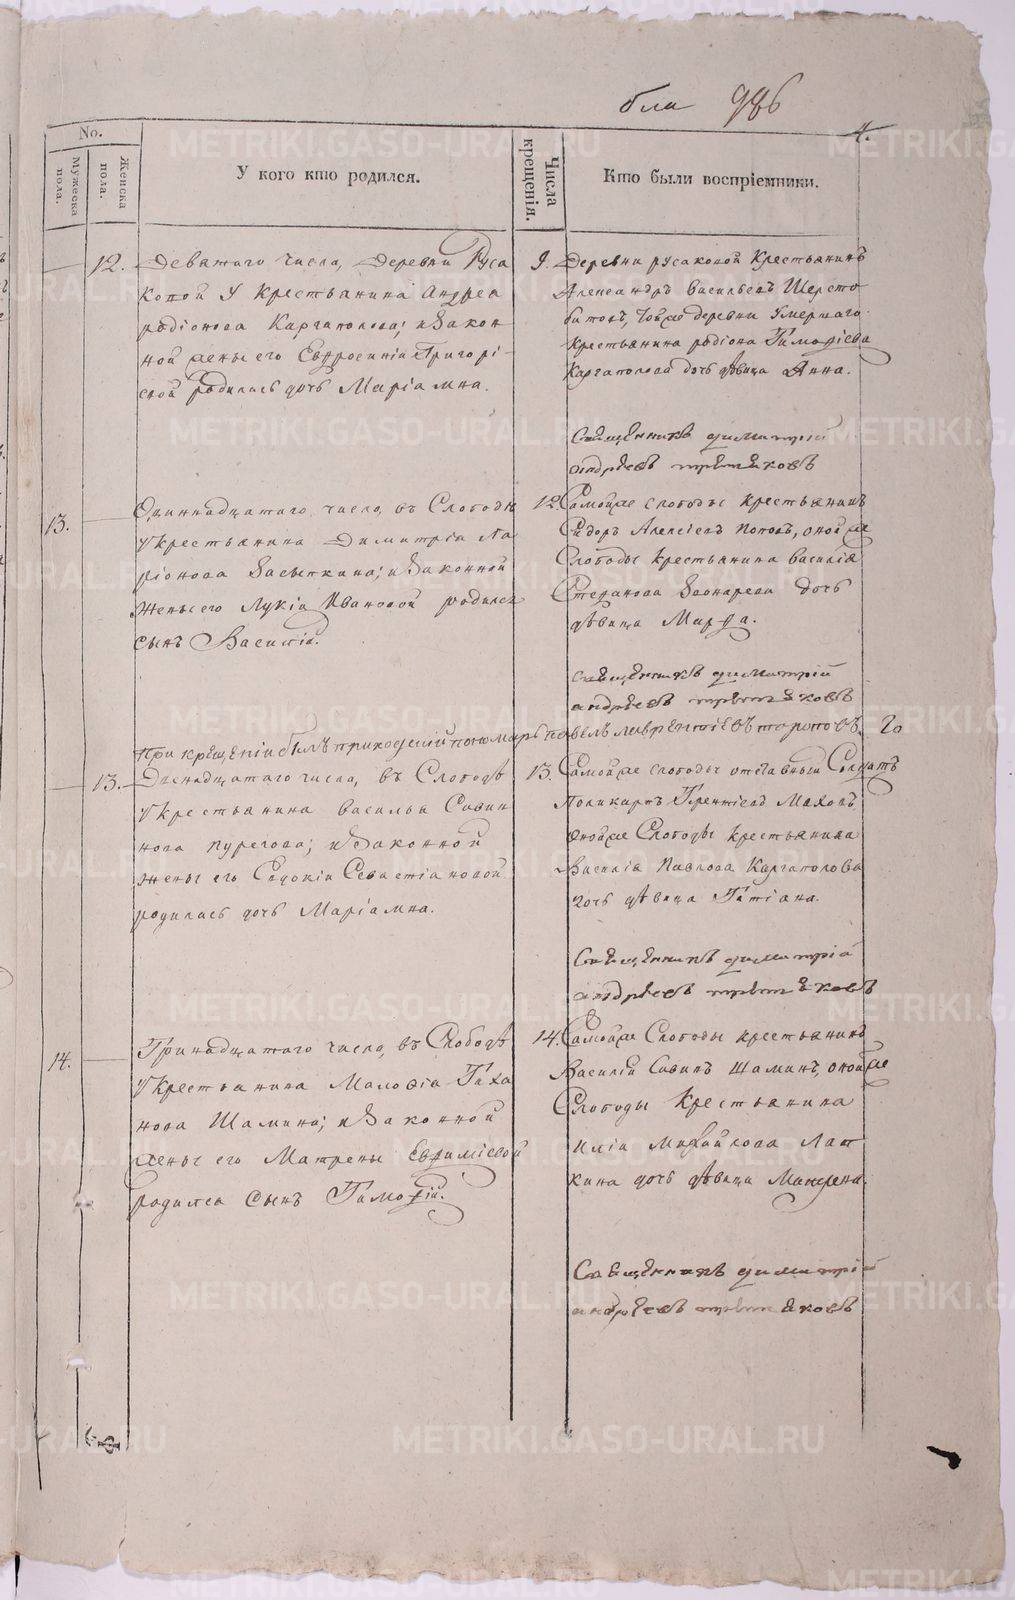 986
4.
No.
Мужеска пола.
Женска пола.
У кого кто родился.
Числа крещенія.
Кто были воспріемники.
12.
Девятаго числа, Деревни Руса
ковой у крестьянина Андрея
родіонова Каргаполова; и Закон
ной жены его Евфросиніи Григорі-
евой родилась дочь Маріамна.
9.
Деревни русаковой Крестьянинъ
Александръ Васильевъ Шерсто
битовъ, тояже деревни Умершаго
крестьянина родіона Тимофіева
Каргаполова дочь дѣвица Анна.
Священникъ димитрій
андреевъ третьяковъ
13.
Одиннадцатаго числа, въ Слободѣ
у крестьянина Димитрія Ла
ріонова Засыпкина; и Законной
жены его Лукіи Ивановой родился
сынъ Василій.
12.
Самойже слободы крестьянинъ
Сидоръ Алексіевъ Поповъ, онойже
Слободы крестьянина Василія
Стефанова Звонарева дочь
дѣвица Марфа.
священникъ димитрій
андреевъ третьяковъ
При крещеніи былъ приходскій пономарь павелъ лаврентіевъ тороповъ.
13.
Двенадцатаго числа, въ Слободѣ
у крестьянина Василья Савин
нова пурегова; и Законной
жены его Евдокіи Севастіановой
родилась дочь Маріамна.
13.
Самойже слободы отставный Солдатъ
Поликарпъ Терентіевъ Маховъ
Онойже Слободы крестьянина
Василія Павлова Каргаполова
дочь дѣвица Татіана.
Священникъ димитрій
андреевъ третьяковъ
14.
Тринадцатаго числа, въ Слободѣ
у крестьянина Малофія Тиха
нова Шамина; и Законной
жены его Матрены Евфиміевой
родился сынъ Тимофій.
14.
Самойже Слободы крестьянинъ
Василій Савинъ Шаминъ, онойже
Слободы Крестьянина
Иліи Михайлова Лап
кина дочь дѣвица Макрена.
Священникъ димитрій
андреевъ третьяковъ
METRIKI.GASO-URAL.RU